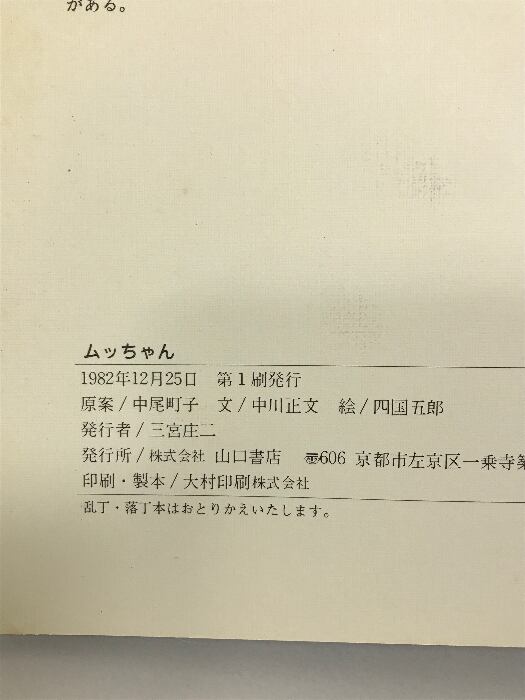 がある。
ムッちゃん
1982年12月25日 第1刷発行
原案/中尾町子 文/中川正文 絵/四国五郎
発行者/三宮庄二
発行所/株式会社 山口書店 〠606 京都市左京区一乗寺築
印刷・製本/大村印刷株式会社
乱丁・落丁本はおとりかえいたします。